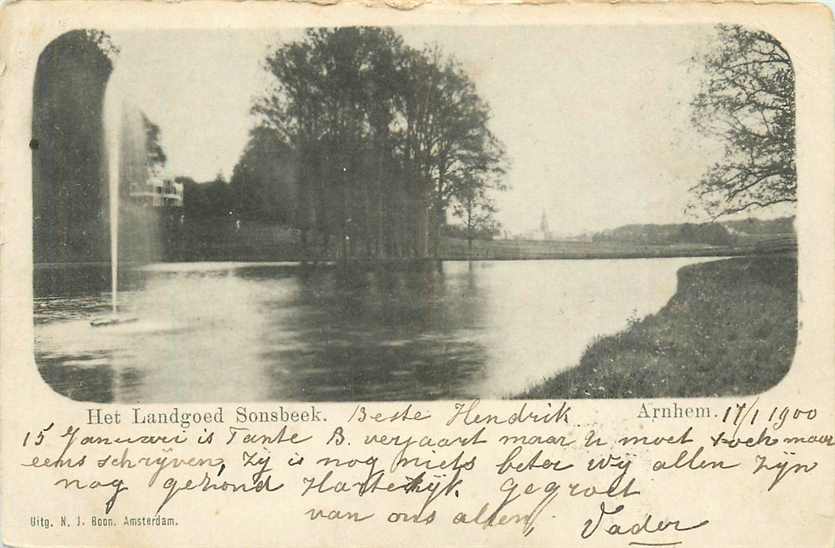 Het Landgoed Sonsbeek. Beste Hendrik Arnhem. 17/1 1900
15 Januari is Tante B. verjaart maar u moet toch maar
eens schrijven, zij is nog niets beter wij allen zijn
nog gezond Hartelijk gegroet
van ons allen, Vader
Uitg. N. J. Boon, Amsterdam.